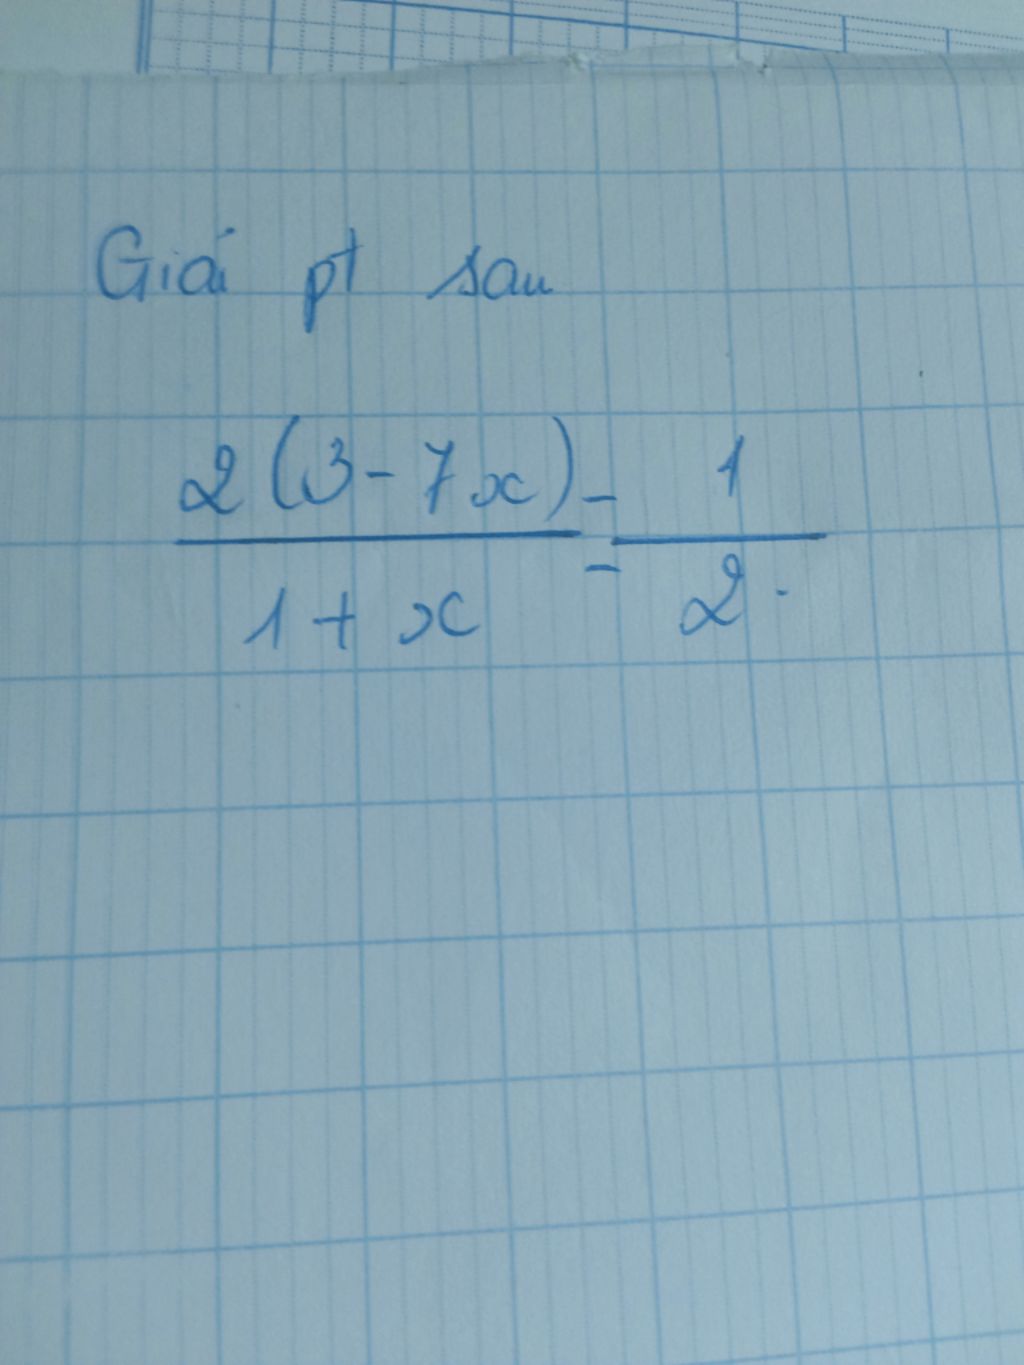 Giải pt sau
2(3-7x)/(1+x) = 1/2.